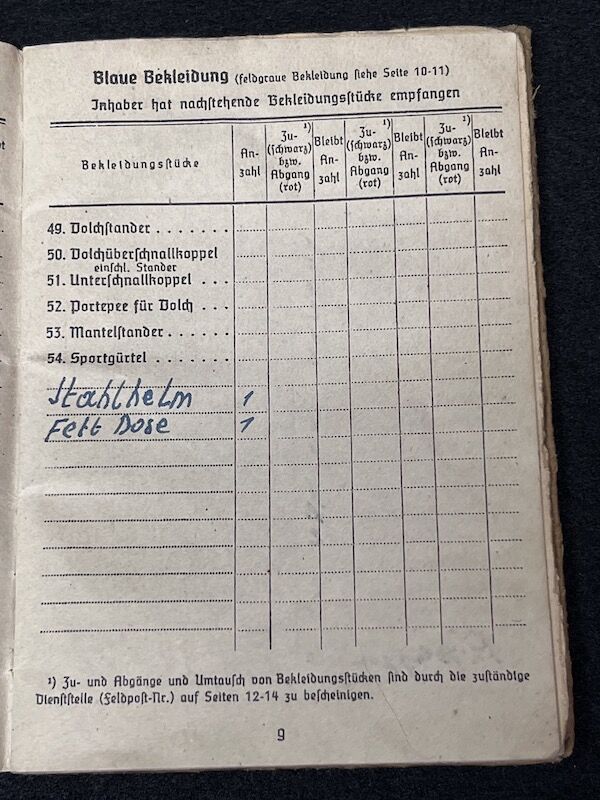 Blaue Bekleidung (feldgraue Bekleidung siehe Seite 10-11)
Inhaber hat nachstehende Bekleidungsstücke empfangen
Bekleidungsstücke
An-
zahl
Zu- ¹)
(schwarz)
bzw.
Abgang
(rot)
Bleibt
An-
zahl
Zu- ¹)
(schwarz)
bzw.
Abgang
(rot)
Bleibt
An-
zahl
Zu- ¹)
(schwarz)
bzw.
Abgang
(rot)
Bleibt
An-
zahl
49. Dolchstander . . . . . . .
50. Dolchüberschnallkoppel
einschl. Stander
51. Unterschnallkoppel . . .
52. Portepee für Dolch . . .
53. Mantelstander . . . . . .
54. Sportgürtel . . . . . . .
Stahlhelm 1
Fett Dose 1
¹) Zu- und Abgänge und Umtausch von Bekleidungsstücken sind durch die zuständige
Dienststelle (Feldpost-Nr.) auf Seiten 12-14 zu bescheinigen.
9